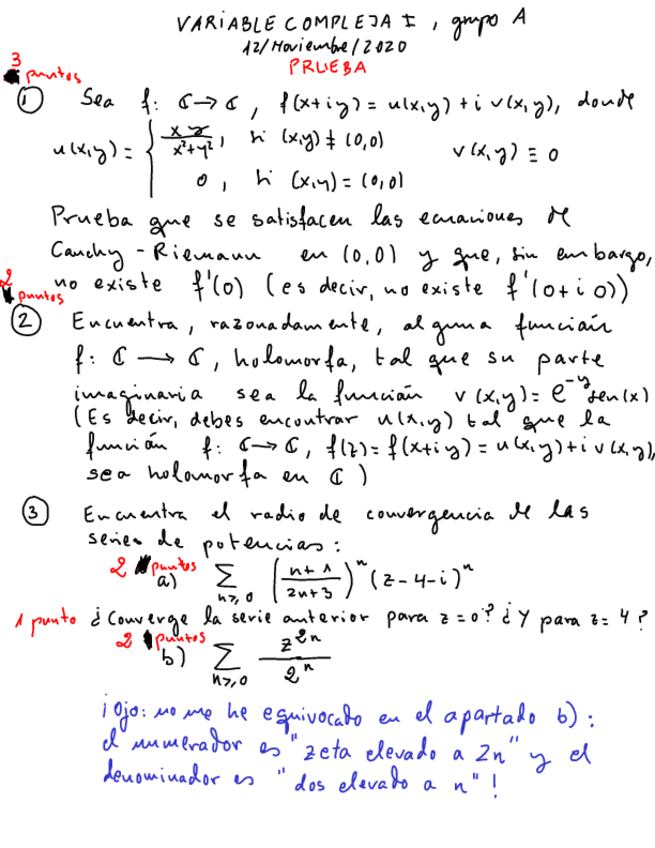 VARIABLE COMPLEJA I, grupo A
12/Noviembre/2020
PRUEBA
3 puntos
① Sea f: ℂ→ℂ, f(x+iy) = u(x,y) + i v(x,y), donde
u(x,y) = { xy/(x²+y²), si (x,y) ≠ (0,0)   v(x,y) ≡ 0
0, si (x,y) = (0,0)
Prueba que se satisfacen las ecuaciones de
Cauchy-Riemann en (0,0) y que, sin embargo,
no existe f'(0) (es decir, no existe f'(0+i0))
2 puntos
② Encuentra, razonadamente, alguna función
f: ℂ → ℂ, holomorfa, tal que su parte
imaginaria sea la función v(x,y) = e^{-y} sen(x)
(Es decir, debes encontrar u(x,y) tal que la
función f: ℂ→ℂ, f(z) = f(x+iy) = u(x,y) + i v(x,y),
sea holomorfa en ℂ)
③ Encuentra el radio de convergencia de las
series de potencias:
2 puntos
a) ∑_{n≥0} ((n+1)/(2n+3))^n (z-4-i)^n
1 punto ¿Converge la serie anterior para z=0? ¿Y para z=4?
2 puntos
b) ∑_{n≥0} z^{2n}/2^n
¡Ojo: no me he equivocado en el apartado b):
el numerador es "zeta elevado a 2n" y el
denominador es "dos elevado a n"!